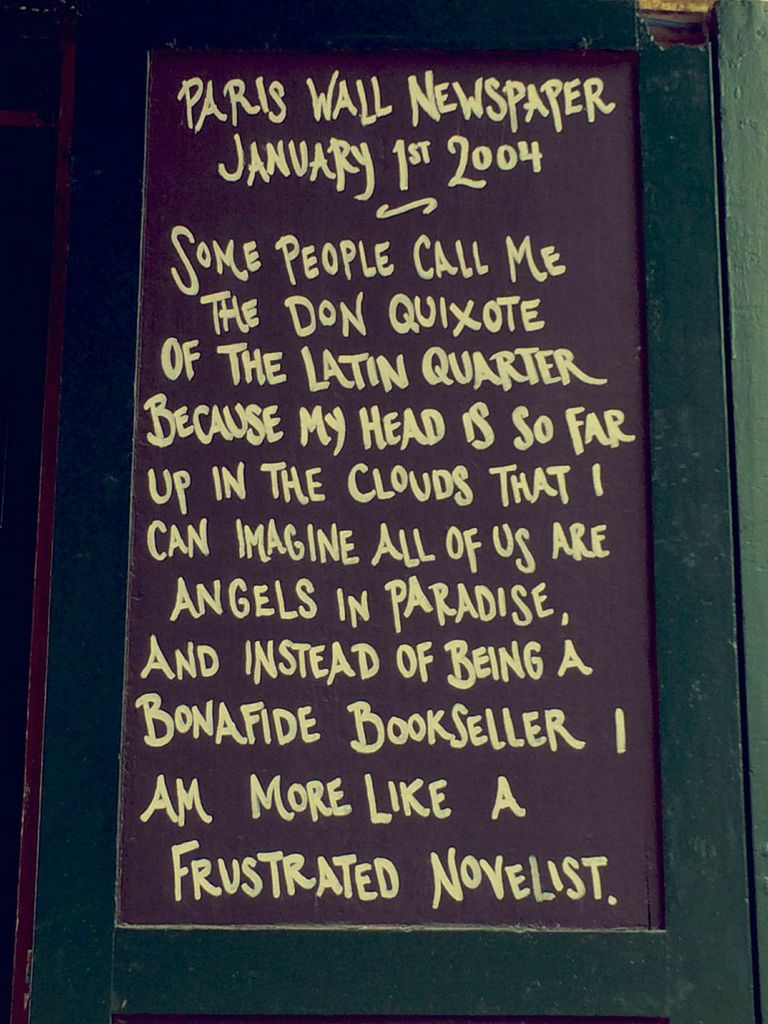 PARIS WALL NEWSPAPER
JANUARY 1ST 2004
SOME PEOPLE CALL ME
THE DON QUIXOTE
OF THE LATIN QUARTER
BECAUSE MY HEAD IS SO FAR
UP IN THE CLOUDS THAT I
CAN IMAGINE ALL OF US ARE
ANGELS IN PARADISE,
AND INSTEAD OF BEING A
BONAFIDE BOOKSELLER I
AM MORE LIKE A
FRUSTRATED NOVELIST.